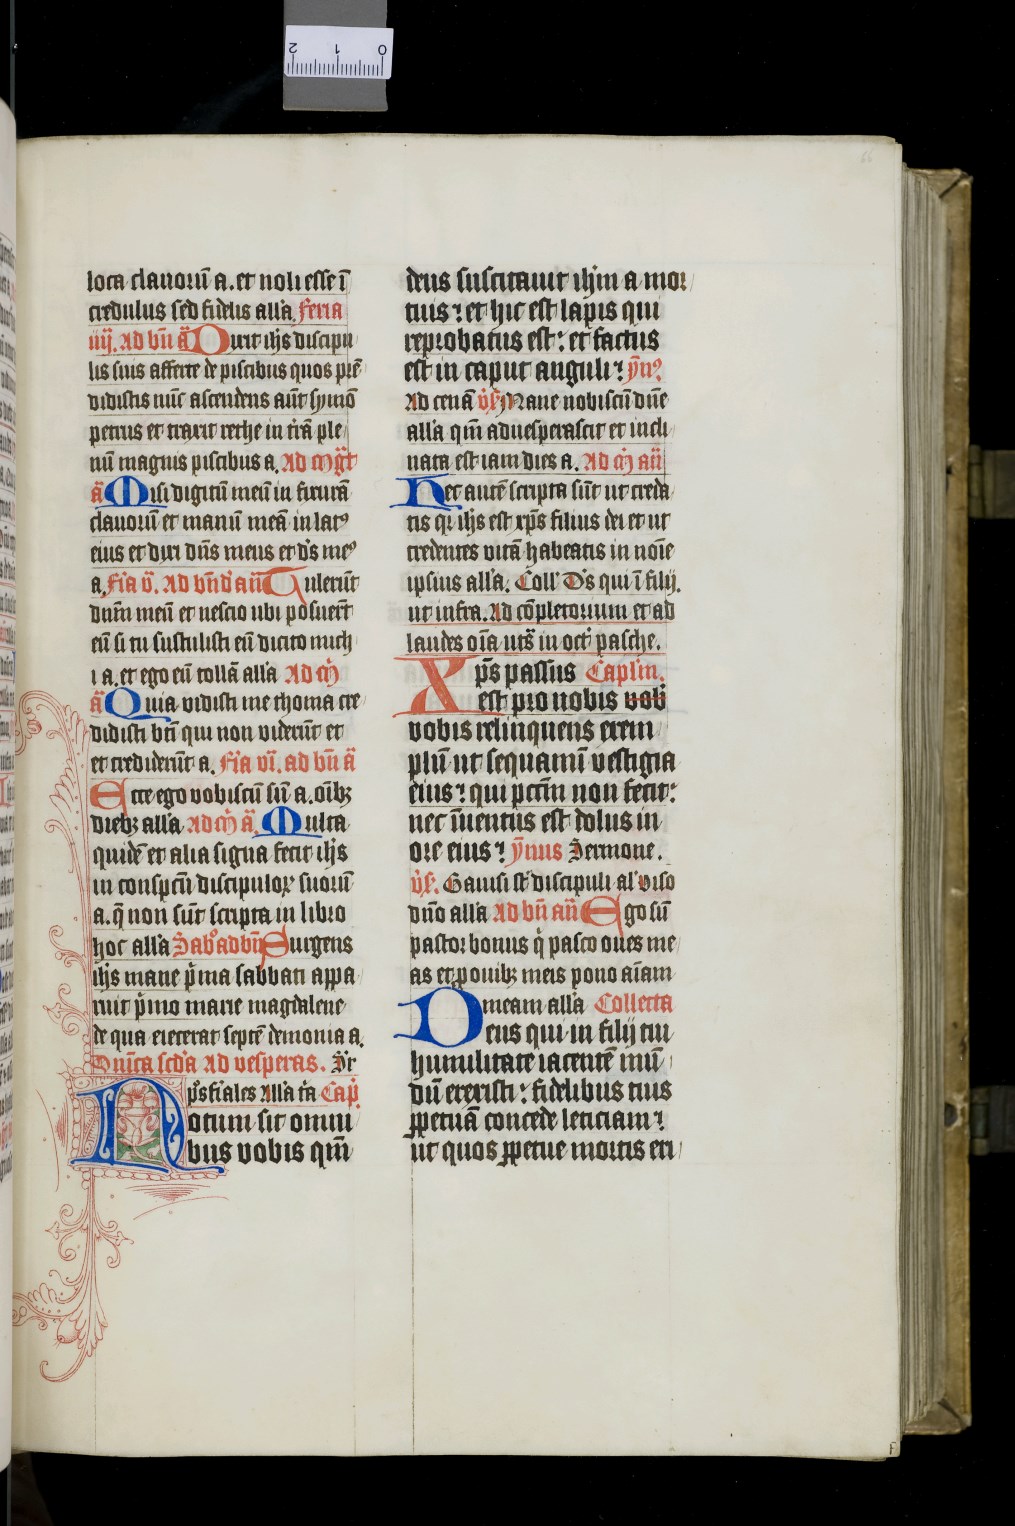 loca clauorū a. et noli esse ī
credulus sed fidelis all'a. feria
iiij. Ad bn̄ a̅ Dixit ih̄s discipu
lis suis afferte de piscibus quos prē
didistis nūc ascendens aūt symō
petrus et traxit rethe in trā ple
nū magnis piscibus a. Ad m̄gt̄
a̅ Misi digitū meū in fixurā
clauorū et manū meā in latꝰ
eius et dixi dn̄s meus et d's meꝰ
a. fīa v̄. Ad bn̄d' an̄ Tulerūt
dn̄m meū et nescio ubi posuerūt
eū si tu sustulisti eū dicito mich
i a. et ego eū tollā all'a Ad m̄
a̅ Quia vidisti me thoma cre
didisti bt̄i qui non viderūt et
et crediderūt a. fīa vī. ad bn̄ a̅
Ecce ego vobiscū sū a. oībꝫ
diebꝫ all'a Ad m̄ a̅. Multa
quidē et alia signa fecit ih̄s
in conspectū discipuloꝝ suorū
a. q̄ non sūt scripta in libro
hoc all'a Sab'o ad bn̄ Surgens
ih̄s mane p̄ma sabbati appa
ruit p̄mo marie magdalene
de qua eiecerat septē demonia a.
Dn̄ica scd'a Ad vesperas. Sr̄
p̄s fīales All'a tn̄ Cap̄
Notum sit omni
bus vobis qm̄
deus suscitauit ih̄m a mor
tuis : et hic est lapis qui
reprobatus est : et factus
est in caput anguli : ȳnꝰ
Ad cenā v̄s̄ Mane nobiscū dn̄e
all'a qm̄ aduesperascit et incli
nata est iam dies a. Ad m̄ an̄
Hec autē scripta sūt ut creda
tis qr ih̄s est xp̄s filius dei et ut
credentes vitā habeatis in noīe
ipsius all'a. Coll' D's qui ī filij.
ut infra. Ad cōpletorium et ad
laudes oīa uts̄ in oct' pasche.
Xp̄s passus Caplm̄.
est pro nobis vob
vobis relinquens exem
plū ut sequamū vestigia
eius : qui pctm̄ non fecit :
nec īuentus est dolus in
ore eius : ȳnus Sermone.
v̄s̄. Gauisi st̄ discipuli al' viso
dn̄o all'a Ad bn̄ an̄ Ego sū
pastor bonus q̄ pasco oues me
as et p ouibꝫ meis pono aīam
meam all'a Collecta
Deus qui in filij tui
humilitate iacentē mū
dū erexisti : fidelibus tuis
ꝑpetuā concede leticiam :
ut quos ꝑpetue mortis eri